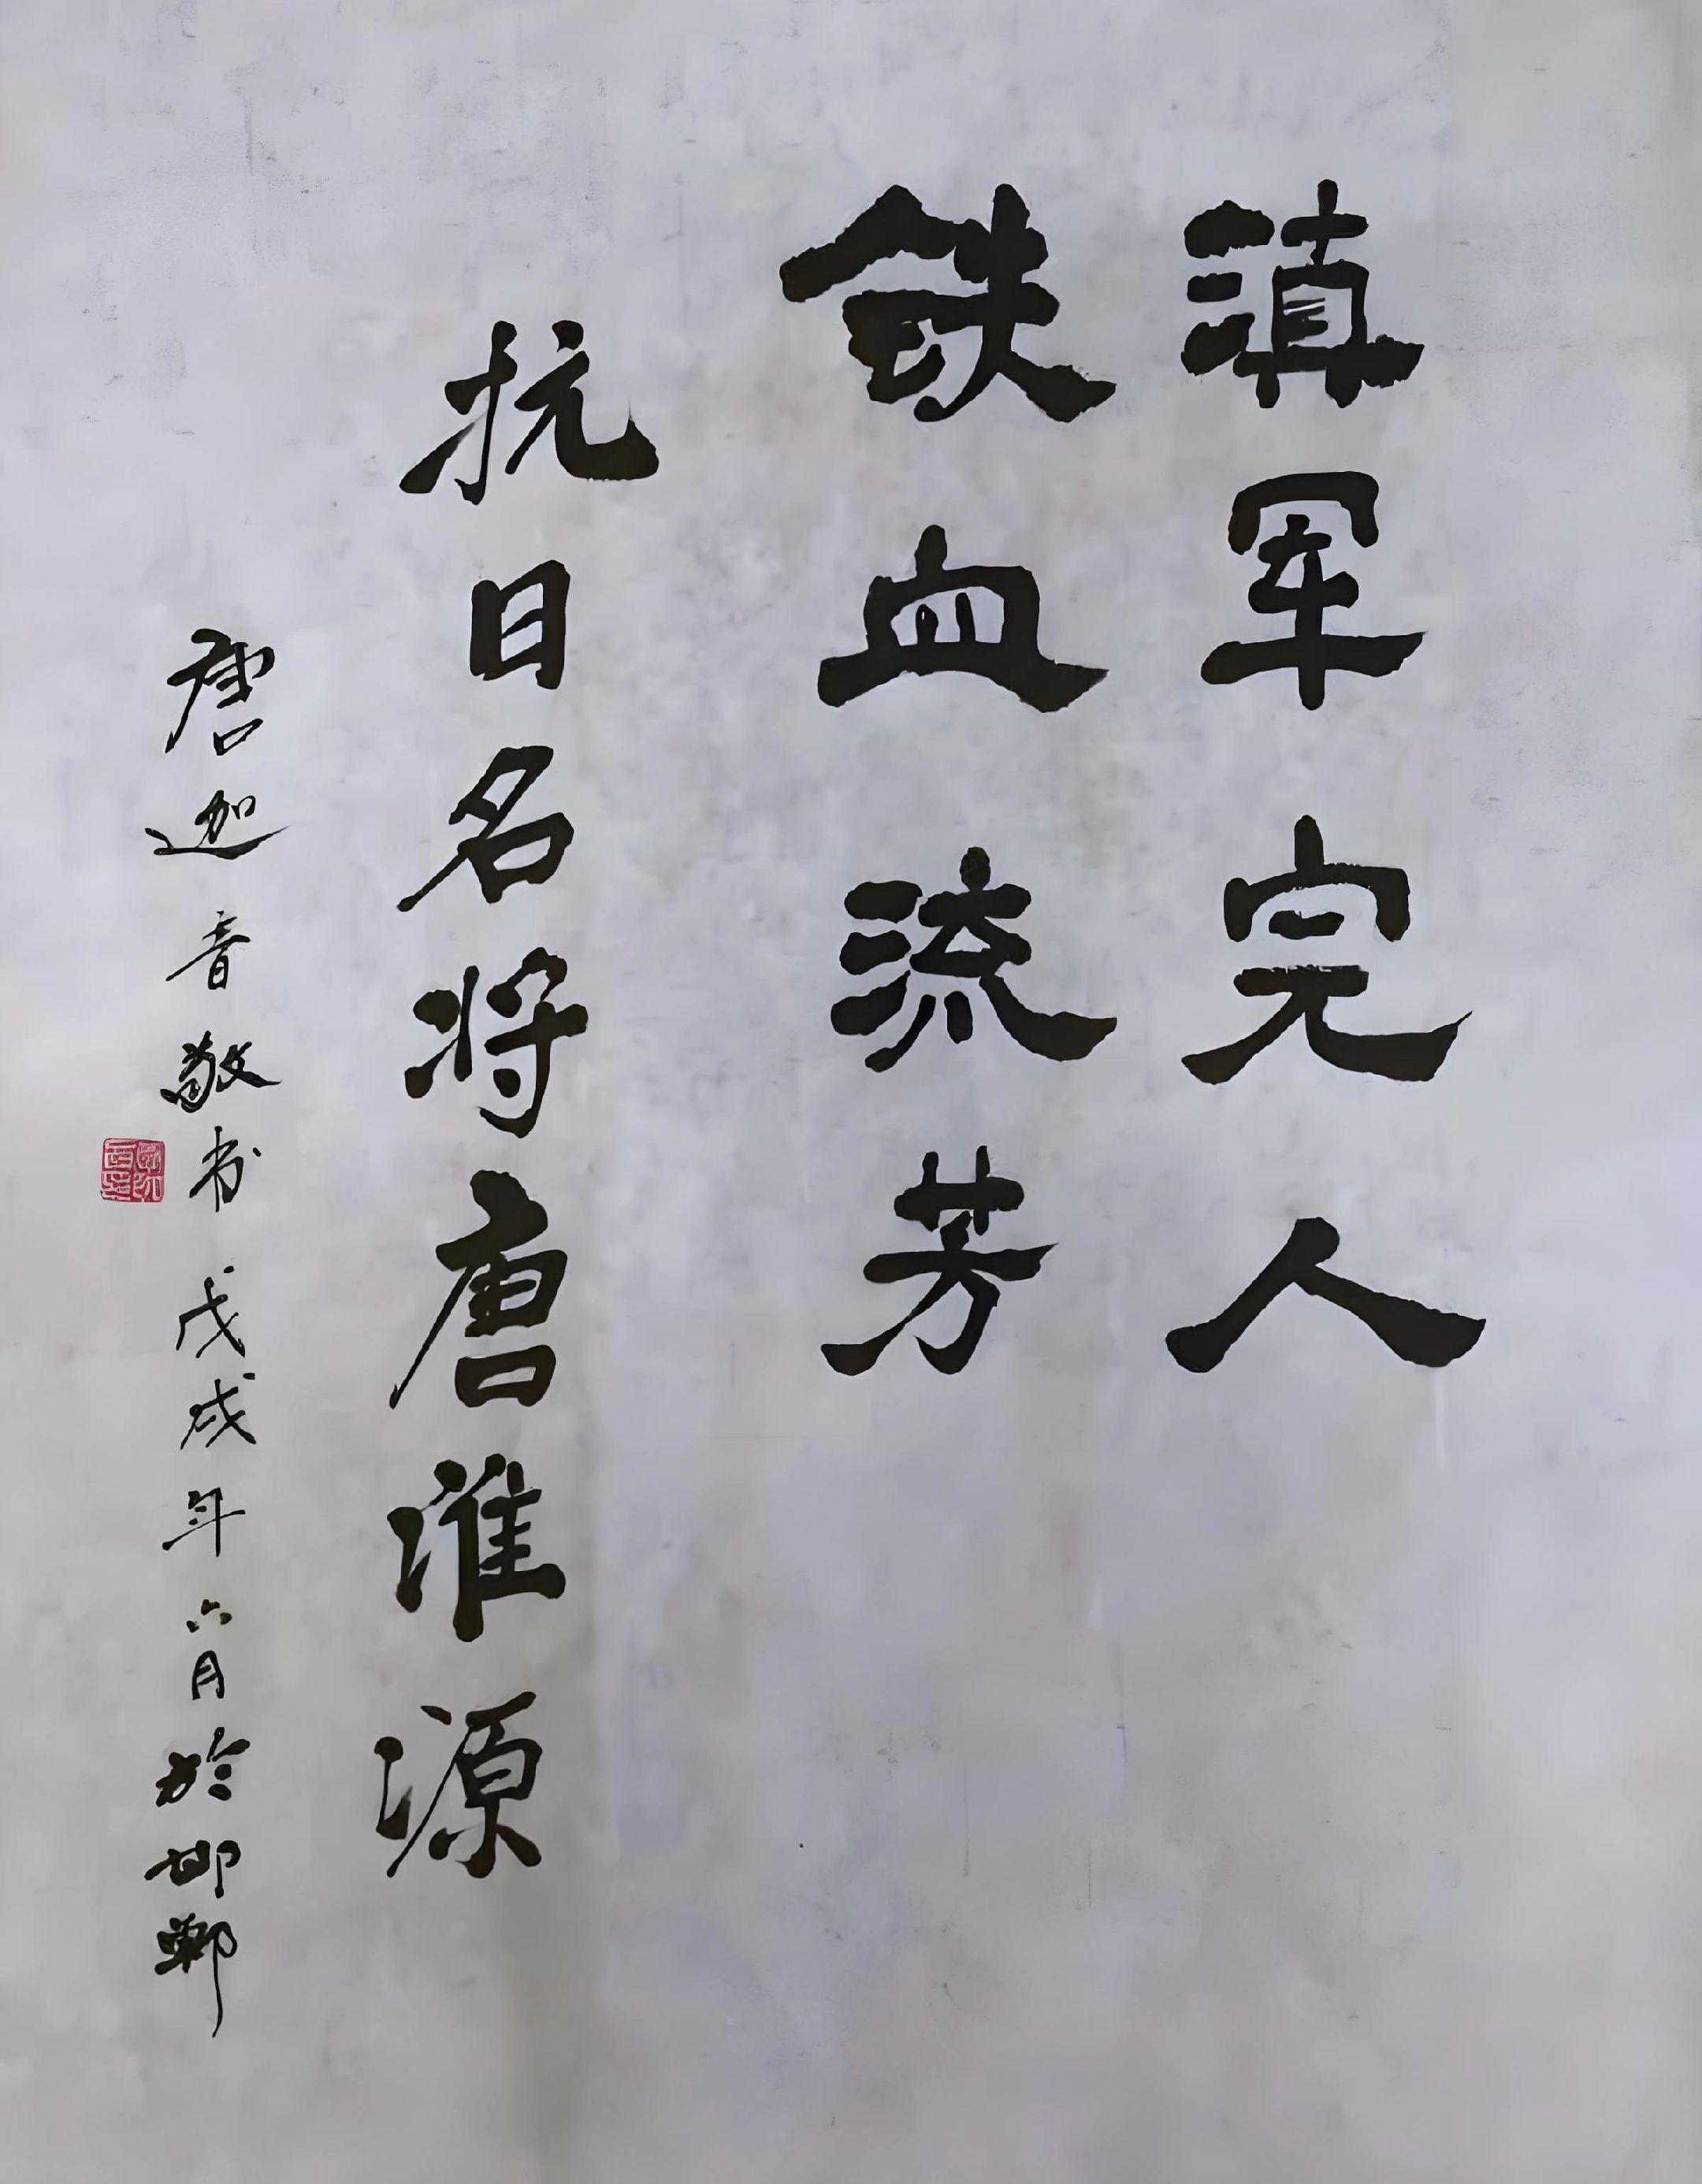 滇军完人
铁血流芳
抗日名将唐淮源
唐迦音敬书 戊戌年六月於邯郸